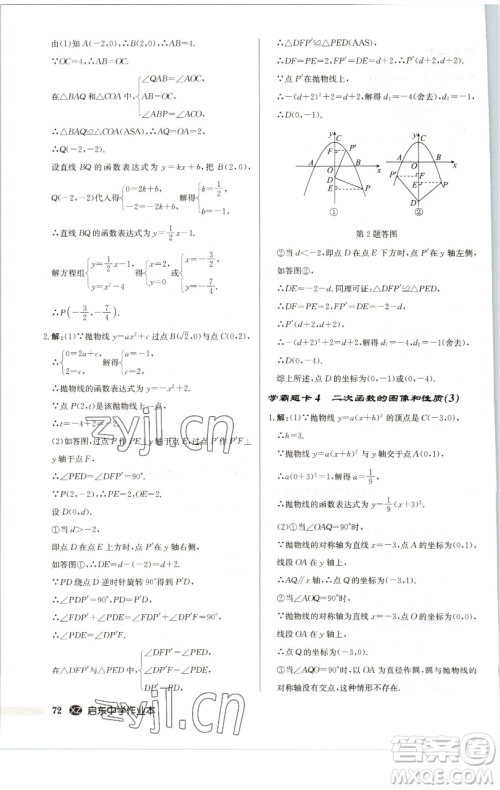 由(1)知 A(-2,0),∴B(2,0),∴AB=4.
∵OC=4,∴AB=OC.
在△BAQ 和△COA 中,{∠QAB=∠AOC, AB=OC, ∠ABP=∠ACO,
∴△BAQ≌△COA(ASA),∴AQ=OA=2.
∴Q(-2,-2).
设直线 BQ 的函数表达式为 y=kx+b,把 B(2,0),
Q(-2,-2)代入得{0=2k+b, -2=-2k+b,解得{k=1/2, b=-1.
∴直线 BQ 的函数表达式为 y=1/2x-1.
解方程组{y=1/2x-1, y=x²-4 得{x=2 y=0 或{x=-3/2, y=-7/4.
∴P(-3/2,-7/4).
2.解:(1)∵抛物线 y=ax²+c 过点 B(√2,0)与点 C(0,2),
∴{0=2a+c, 2=c,解得{a=-1, c=2.
∴抛物线的函数表达式为 y=-x²+2.
∴t=-4+2=-2.
于点 F.
∴∠PED=∠DFP′=90°.
设 D(0,d).
①当 d>-2,
即点 D 在点 E 上方时,点 P′在 y 轴右侧,
如答图①,∴DE=d-(-2)=d+2.
∵PD 绕点 D 逆时针旋转 90°得到 P′D,
∴∠PDP′=90°,PD=P′D.
∴∠FDP′+∠PDE=∠FDP′+∠DP′F.
∴∠PDE=∠DP′F.
在△DFP′与△PED 中,{∠DFP′=∠PED, ∠DP′F=∠PDE, DP′=PD,
72 XZ 启东中学作业本
∴△DFP′≌△PED(AAS).
∴DF=PE=2,P′F=DE=d+2.
∴P′(d+2,d+2).
∵点 P′在抛物线上,
∴-(d+2)²+2=d+2.解得 d=-4(舍去),d=-1.
∴D(0,-1).
y C F P′ A O B x D E P ①
y C A O B x F E P′ P D ②
第 2 题答图
②当 d<-2,即点 D 在点 E 下方时,点 P′在 y 轴左侧,
如答图②,
∴DE=-2-d.
同理可证:△DFP′≌△PED.
∴DF=PE=2,P′F=DE=-2-d.
∴P′(d+2,d+2).
∴-(d+2)²+2=d+2.解得 d=-4,d=-1(舍去).
∴D(0,-4).
综上所述,点 D 的坐标为(0,-1)或(0,-4).
学霸题卡 4 二次函数的图像和性质(3)
1.解:(1)∵抛物线 y=a(x+h)² 的顶点是 C(-3,0),
∴h=3.
∵抛物线 y=a(x+3)² 过点(0,1),
∴a(0+3)²=1.解得 a=1/9.
∴抛物线的函数表达式为 y=1/9(x+3)².
(2)①当∠OAQ=90°时,
∵抛物线的对称轴为直线 x=-3,点 A 的坐标为(0,1),
线段 OA 在 y 轴上,
∴AQ∥x 轴.∴点 Q 的坐标为(-3,1).
②当∠AOQ=90°时,
∵抛物线的对称轴为直线 x=-3,点 A 的坐标为(0,1),
线段 OA 在 y 轴上,
∴点 Q 的坐标为(-3,0).
③当∠AQO=90°时,因为以 OA 为直径的圆与抛物线的
对称轴没有交点,这种情形不存在.
zyjl.cn
zyjl.cn
答案圈
MXQE.COM